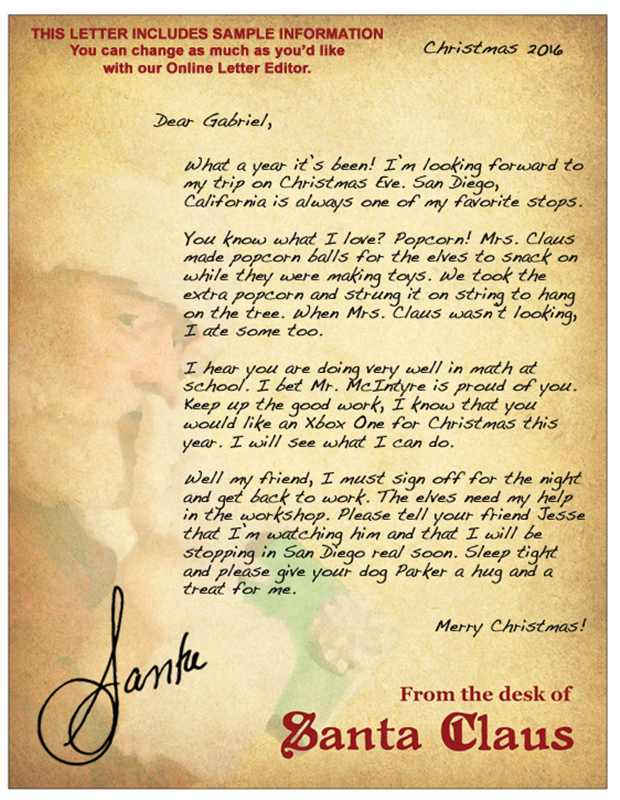 THIS LETTER INCLUDES SAMPLE INFORMATION
You can change as much as you'd like
with our Online Letter Editor.
Christmas 2016
Dear Gabriel,
What a year it's been! I'm looking forward to
my trip on Christmas Eve. San Diego,
California is always one of my favorite stops.
You know what I love? Popcorn! Mrs. Claus
made popcorn balls for the elves to snack on
while they were making toys. We took the
extra popcorn and strung it on string to hang
on the tree. When Mrs. Claus wasn't looking,
I ate some too.
I hear you are doing very well in math at
school. I bet Mr. McIntyre is proud of you.
Keep up the good work, I know that you
would like an Xbox One for Christmas this
year. I will see what I can do.
Well my friend, I must sign off for the night
and get back to work. The elves need my help
in the workshop. Please tell your friend Jesse
that I'm watching him and that I will be
stopping in San Diego real soon. Sleep tight
and please give your dog Parker a hug and a
treat for me.
Merry Christmas!
Santa
From the desk of
Santa Claus